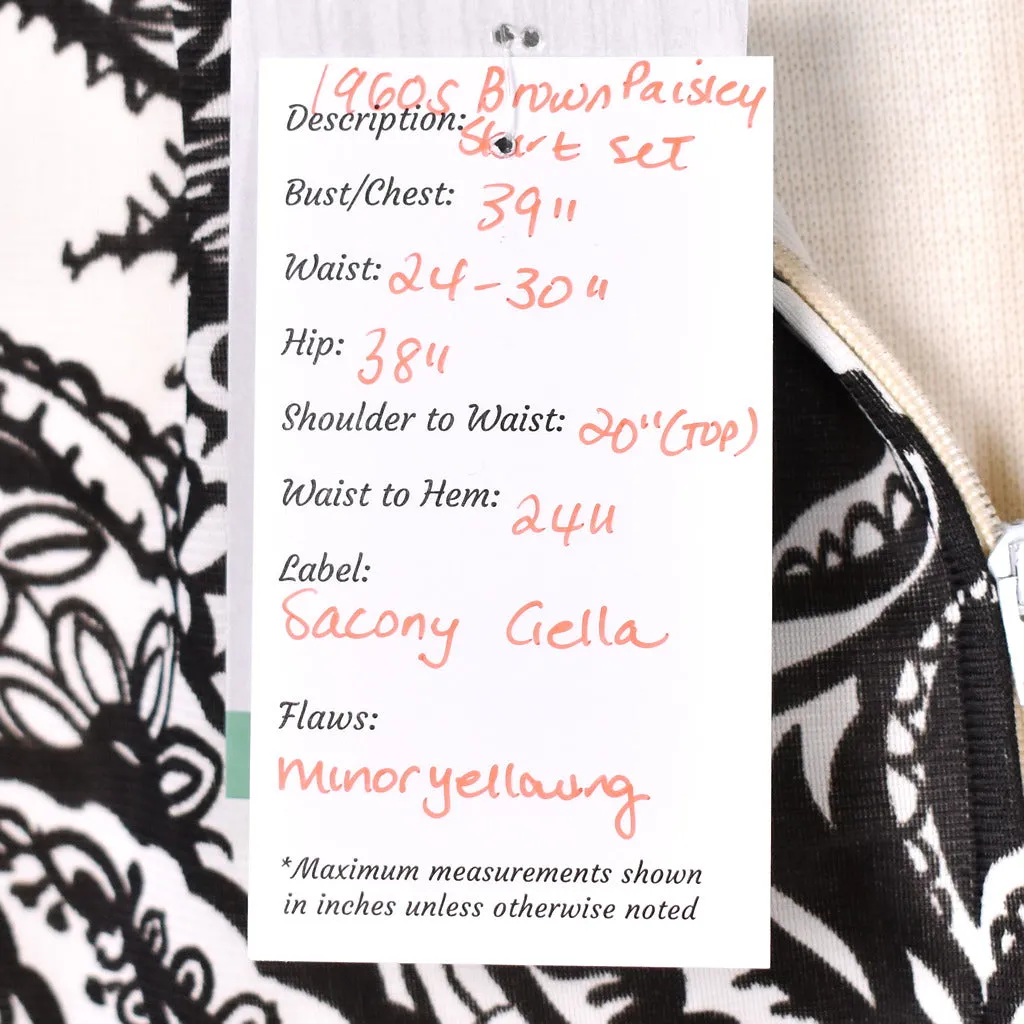 1960s Brown Paisley
Description: Skirt set
Bust/Chest: 39"
Waist: 24-30"
Hip: 38"
Shoulder to Waist: 20" (TOP)
Waist to Hem: 24"
Label:
Sacony Ciella
Flaws:
Minor yellowing
*Maximum measurements shown
in inches unless otherwise noted